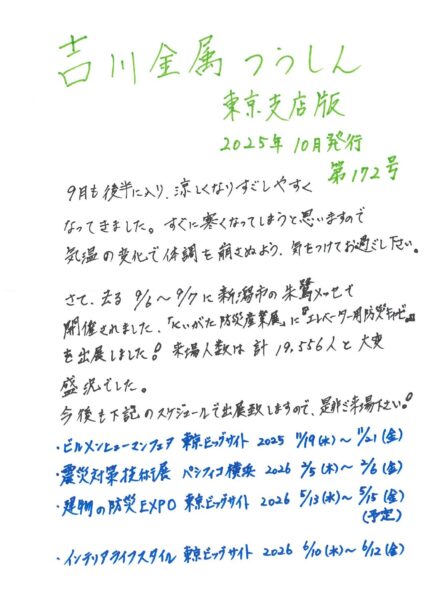 吉川金属つうしん
東京支店版
2025年10月発行
第172号
9月も後半に入り、涼しくなりすごしやすく
なってきました。すぐに寒くなってしまうと思いますので
気温の変化で体調を崩さぬよう、気をつけてお過ごし下さい。
さて、去る9/6～9/7に新潟市の朱鷺メッセで
開催されました、「にいがた防災産業展」に『エレベーター用防災キャビ』
を出展しました!来場人数は計19,556人と大変
盛況でした。
今後も下記のスケジュールで出展致しますので、是非ご来場下さい!
・ビルメンヒューマンフェア 東京ビッグサイト 2025 11/19(水)～11/21(金)
・震災対策技術展 パシフィコ横浜 2026 2/5(木)～2/6(金)
・建物の防災EXPO 東京ビッグサイト 2026 5/13(水)～5/15(金)
(予定)
・インテリアライフスタイル 東京ビッグサイト 2026 6/10(水)～6/12(金)